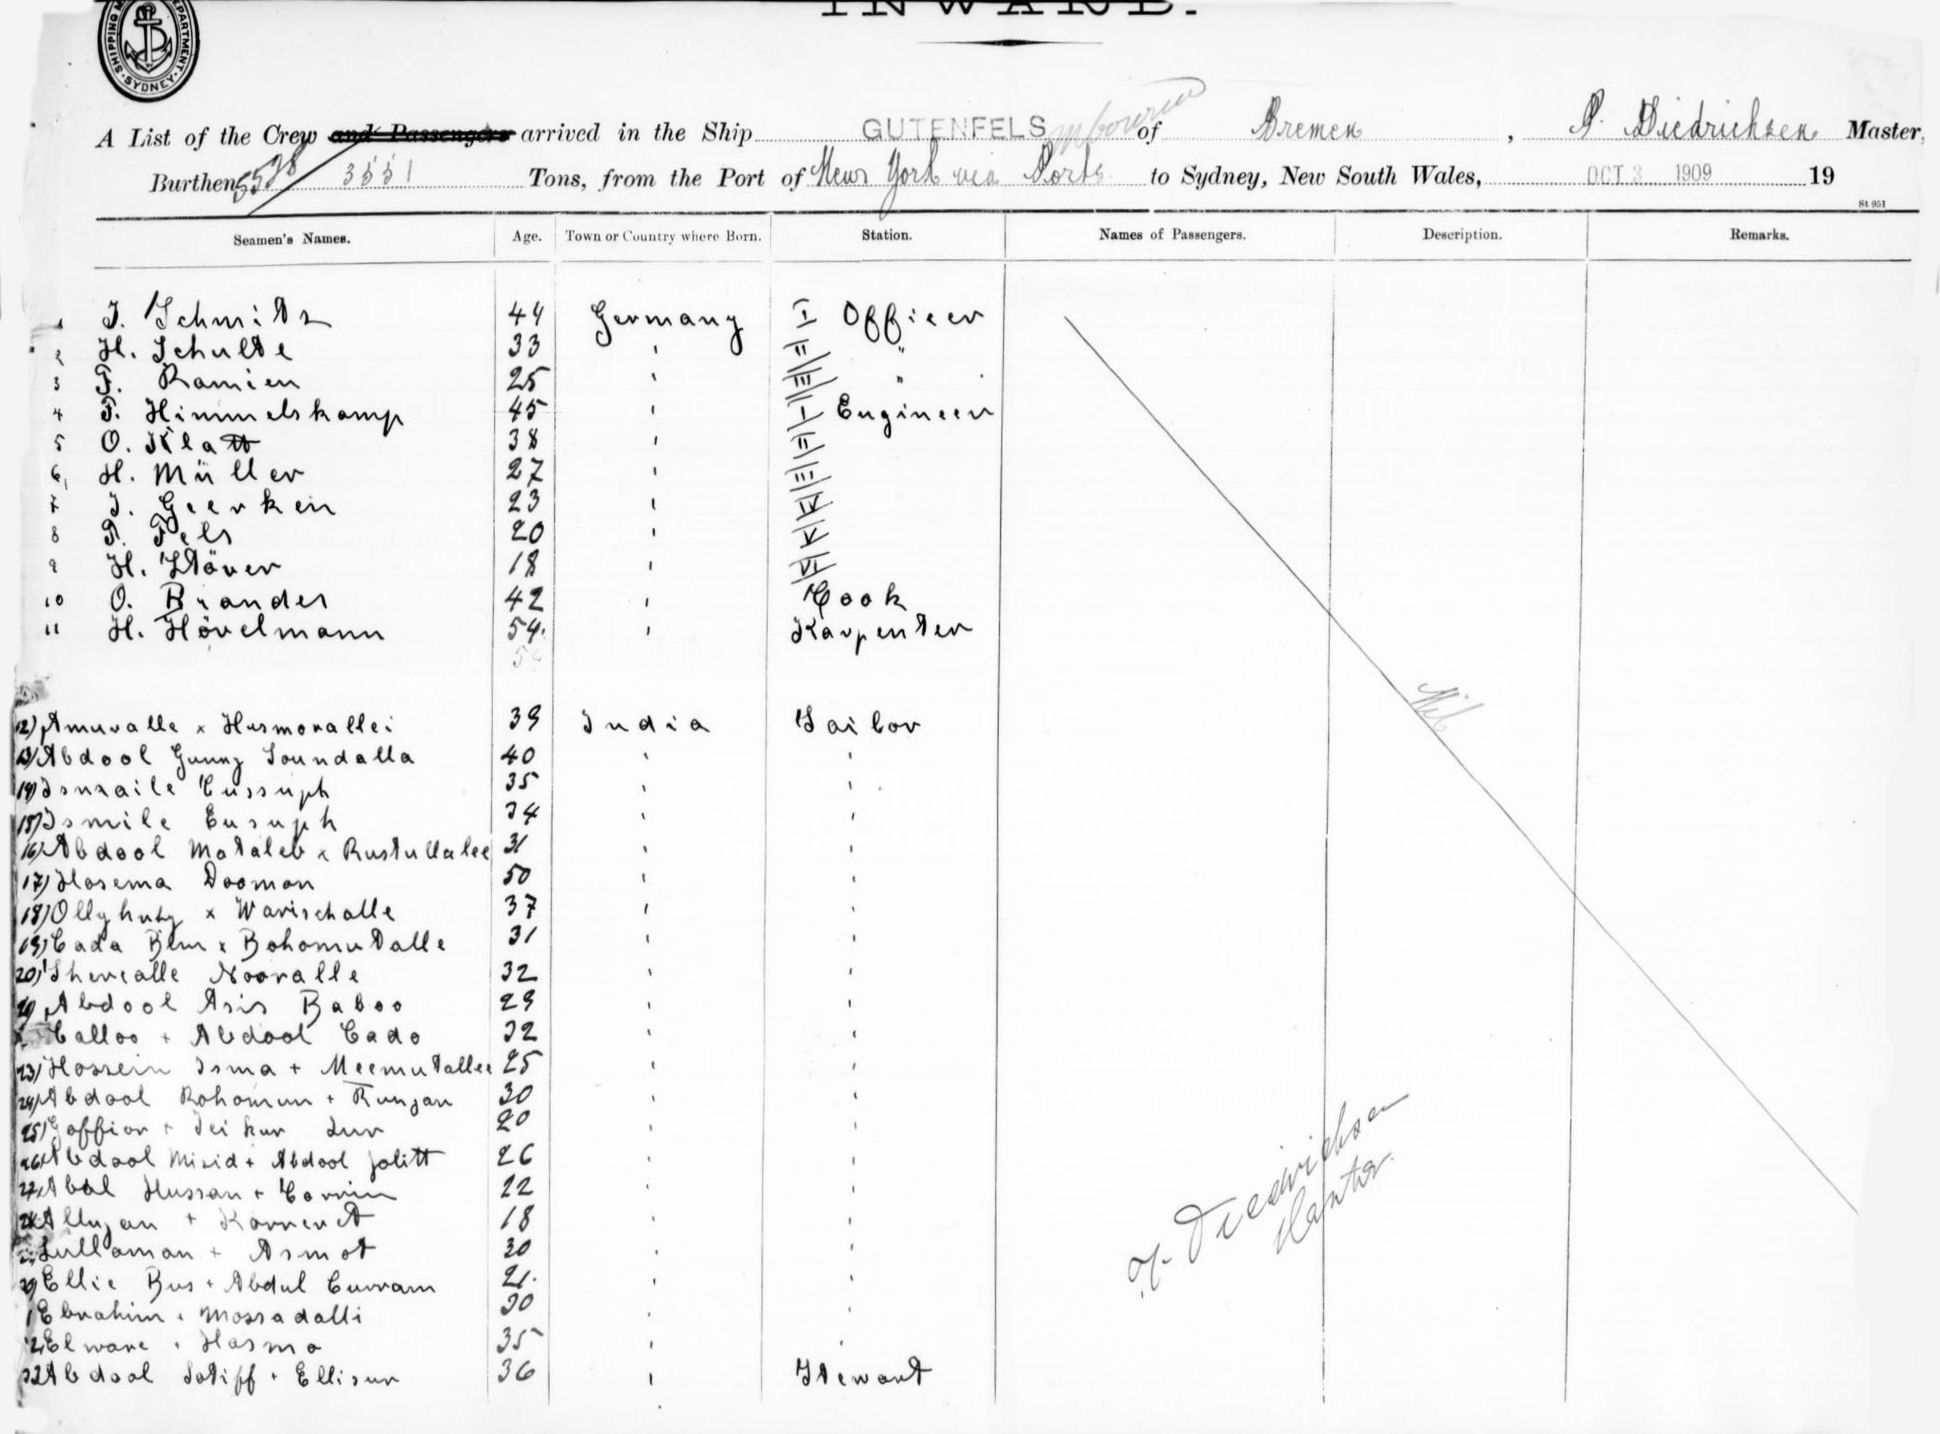 INWARD.
SHIPPING MASTER'S DEPARTMENT SYDNEY
A List of the Crew and Passengers arrived in the Ship GUTENFELS of Bremen, P. Diedrichsen Master,
Burthen 5528 / 3551 Tons, from the Port of New York via Ports to Sydney, New South Wales, OCT 3 1909 19
St 951
Seamen's Names. Age. Town or Country where Born. Station. Names of Passengers. Description. Remarks.
1 J. Schmidt 44 Germany I Officer
2 H. Schulte 33 " II "
3 F. Ramien 25 " III "
4 F. Himmelskamp 45 " I Engineer
5 O. Klatt 38 " II
6 H. Müller 27 " III
7 J. Geerken 23 " IV
8 P. Fels 20 " V
9 H. Stöver 18 " VI
10 O. Brandes 42 " Cook
11 H. Hövelmann 54 " Karpenter
Nil
12) Amuralle x Husmorallei 39 India Sailor
13) Abdool Gunny Soundalla 40 " "
14) Ismaile Cussuph 35 " "
15) Ismile Eusuph 34 " "
16) Abdool Mataleb x Rustullalee 31 " "
17) Hosema Doomon 50 " "
18) x Warischalle 37 " "
19) Cada Bux x Bohomutalle 31 " "
20) Sherealle Nooralle 32 " "
21) Abdool Asis Baboo 29 " "
Calloo + Abdool Cado 32 " "
23) Hossein Isma + Meemutallee 25 " "
24) Abdool Rohomun + Runjan 30 " "
25) Goffior + 20 " "
26) Abdool Misid + Abdool Jolitt 26 " "
27) Abdl Hussan + 22 " "
Allyjan + 18 " "
Lullaman + Asmot 30 " "
Ellie Bus + Abdul Curram 21 " "
Ebrahim + Mossadalli 30 " "
Elware + Hasmo 35 " "
Abdool Sotiff + Ellisur 36 " Stewart
P. Diedrichsen
Master